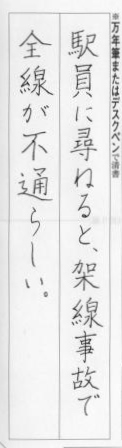 ※万年筆またはデスクペンで清書
駅員に尋ねると、架線事故で
全線が不通らしい。